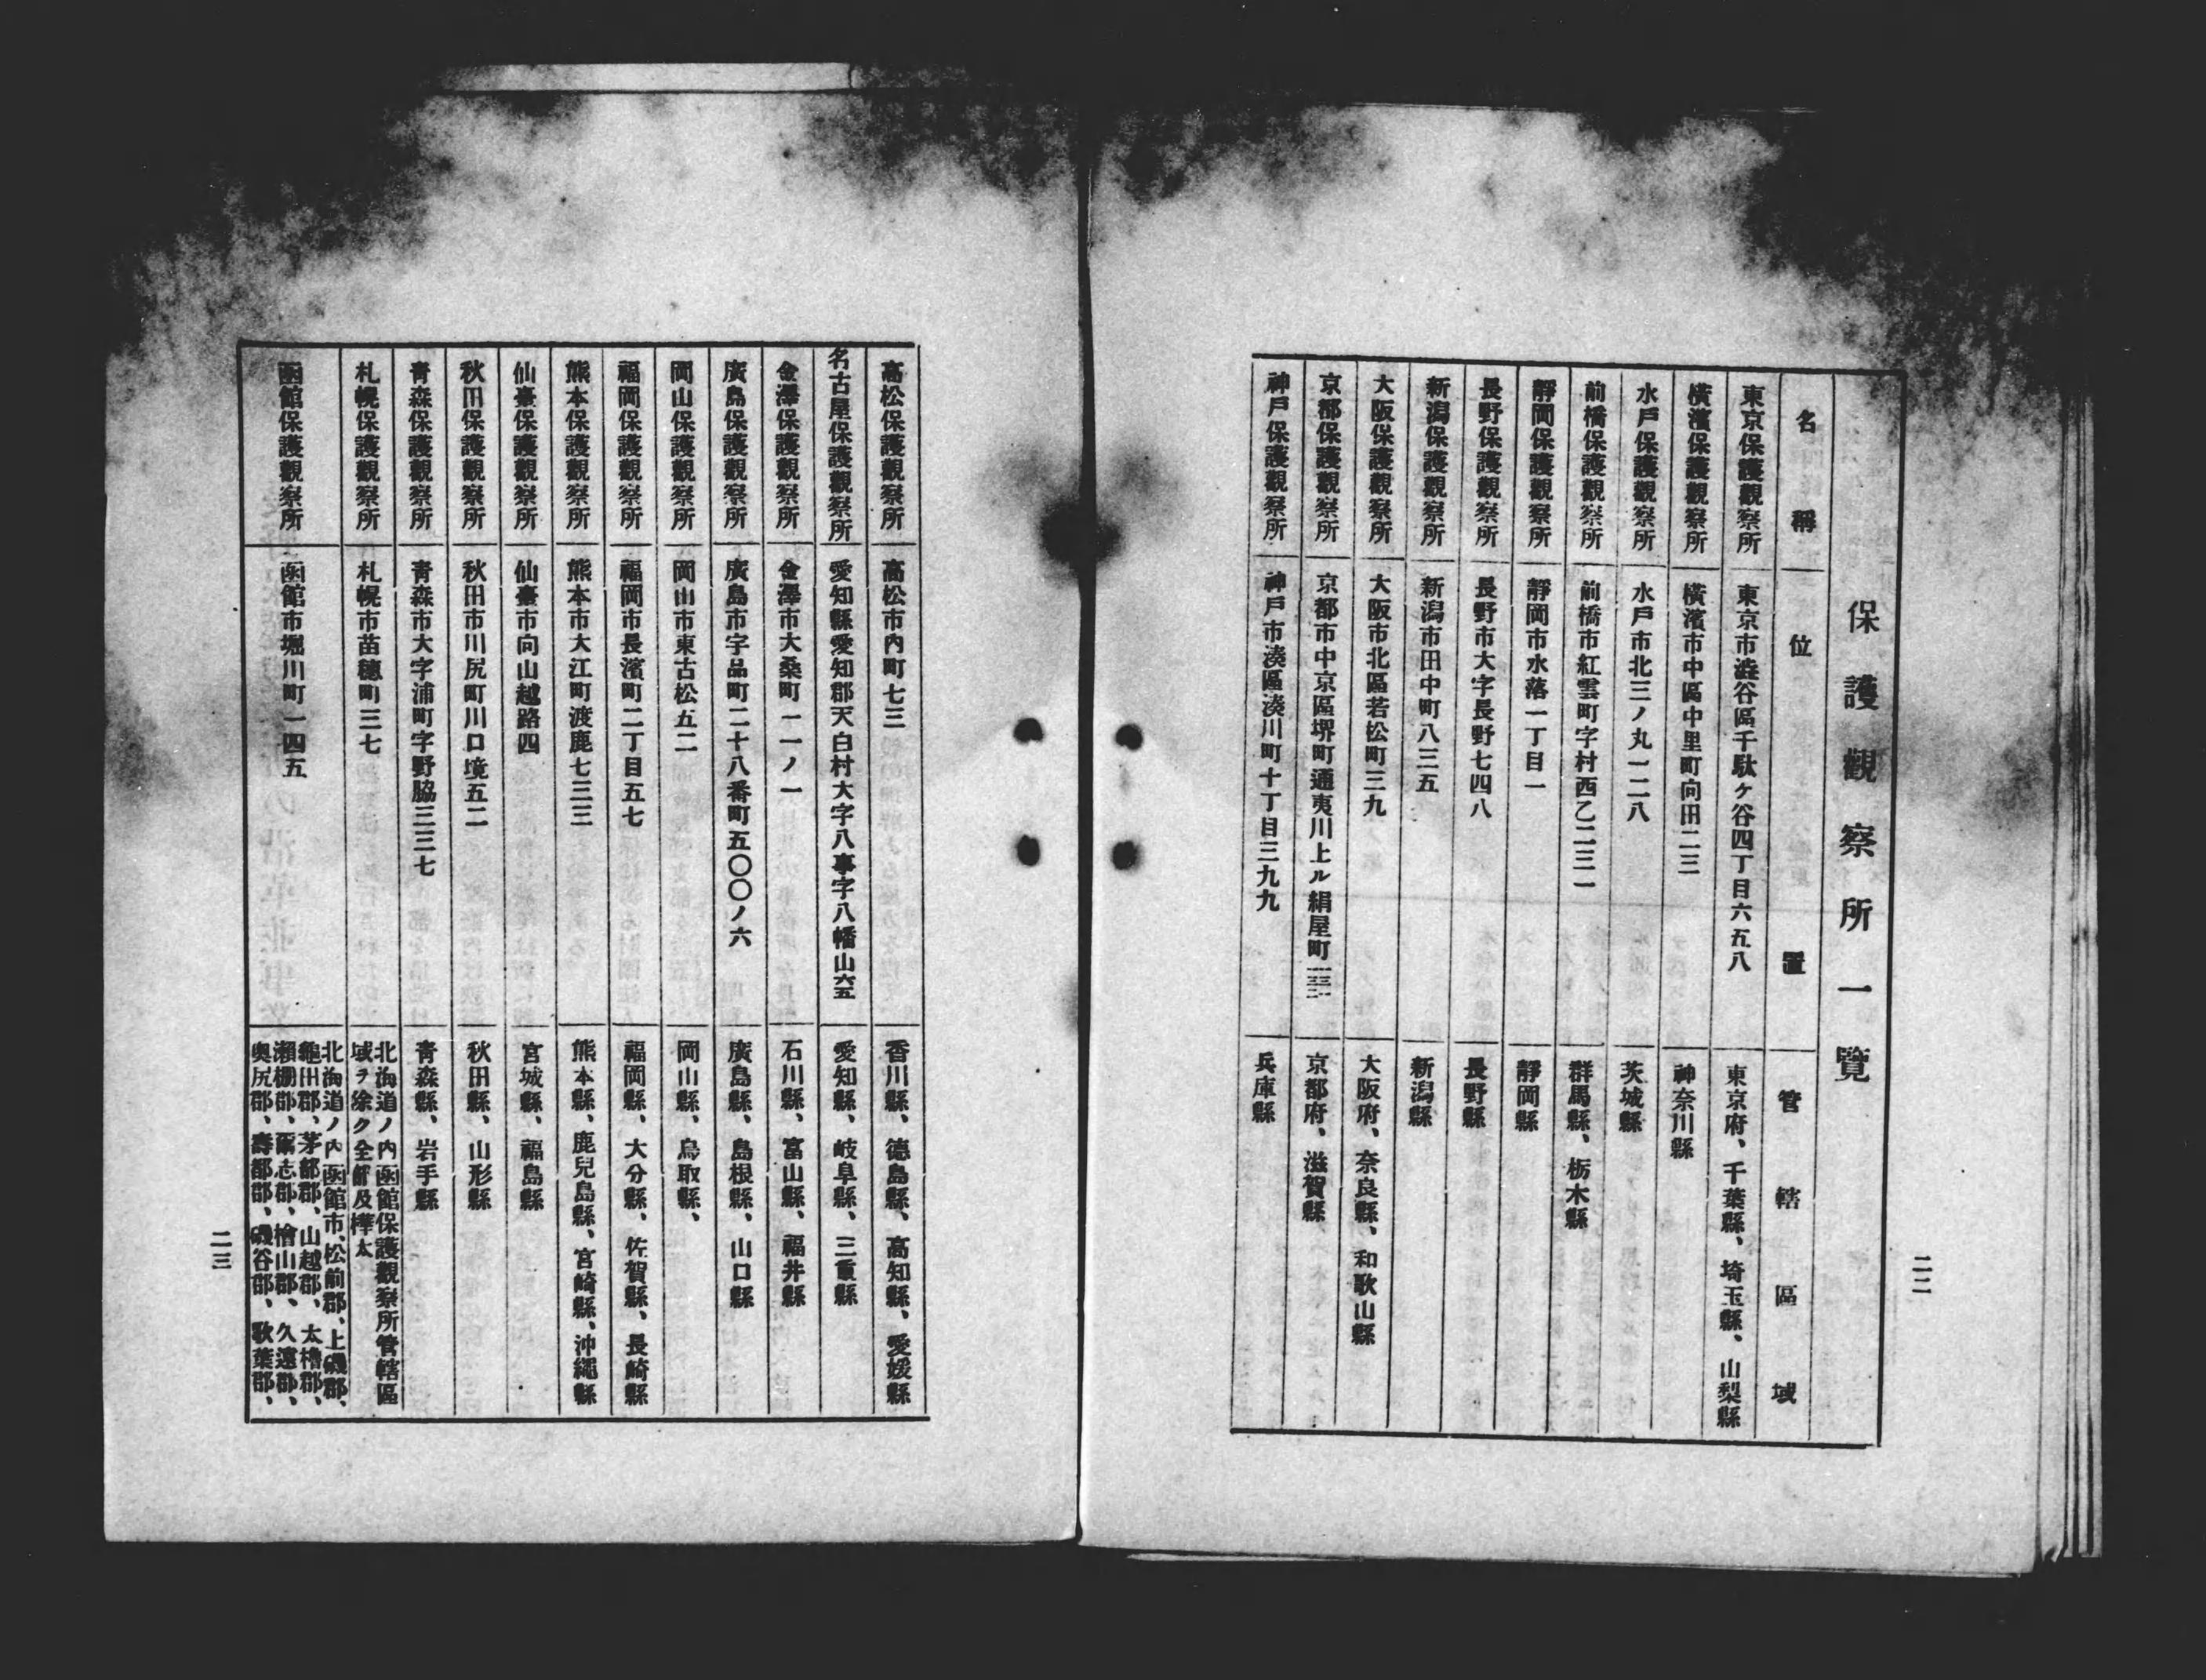 保護觀察所一覽
名稱 位置 管轄區域
東京保護觀察所 東京市澁谷區千駄ケ谷四丁目六五八 東京府、千葉縣、埼玉縣、山梨縣
橫濱保護觀察所 橫濱市中區中里町向田二三 神奈川縣
水戶保護觀察所 水戶市北三ノ丸一二八 茨城縣
前橋保護觀察所 前橋市紅雲町字村西乙二三一 群馬縣、栃木縣
靜岡保護觀察所 靜岡市水落一丁目一 靜岡縣
長野保護觀察所 長野市大字長野七四八 長野縣
新潟保護觀察所 新潟市田中町八三五 新潟縣
大阪保護觀察所 大阪市北區若松町三九 大阪府、奈良縣、和歌山縣
京都保護觀察所 京都市中京區堺町通夷川上ル絹屋町 京都府、滋賀縣
神戶保護觀察所 神戶市湊區湊川町十丁目三九九 兵庫縣
二二
高松保護觀察所 高松市內町七三 香川縣、德島縣、高知縣、愛媛縣
名古屋保護觀察所 愛知縣愛知郡天白村大字八事字八幡山六五 愛知縣、岐阜縣、三重縣
金澤保護觀察所 金澤市大桑町一一ノ一 石川縣、富山縣、福井縣
廣島保護觀察所 廣島市字品町二十八番町五〇〇ノ六 廣島縣、島根縣、山口縣
岡山保護觀察所 岡山市東古松五二 岡山縣、鳥取縣、
福岡保護觀察所 福岡市長濱町二丁目五七 福岡縣、大分縣、佐賀縣、長崎縣
熊本保護觀察所 熊本市大江町渡鹿七三三 熊本縣、鹿兒島縣、宮崎縣、沖繩縣
仙臺保護觀察所 仙臺市向山越路四 宮城縣、福島縣
秋田保護觀察所 秋田市川尻町川口境五二 秋田縣、山形縣
靑森保護觀察所 靑森市大字浦町字野脇三三七 靑森縣、岩手縣
札幌保護觀察所 札幌市苗穗町三七 北海道ノ內函館保護觀察所管轄區
域ヲ除ク全部及樺太
函館保護觀察所 函館市堀川町一四五 北海道ノ內函館市、松前郡、上磯郡、
龜田郡、茅部郡、山越郡、太櫓郡、
瀨棚郡、爾志郡、檜山郡、久遠郡、
奧尻郡、壽都郡、磯谷郡、歌葉郡、
二三